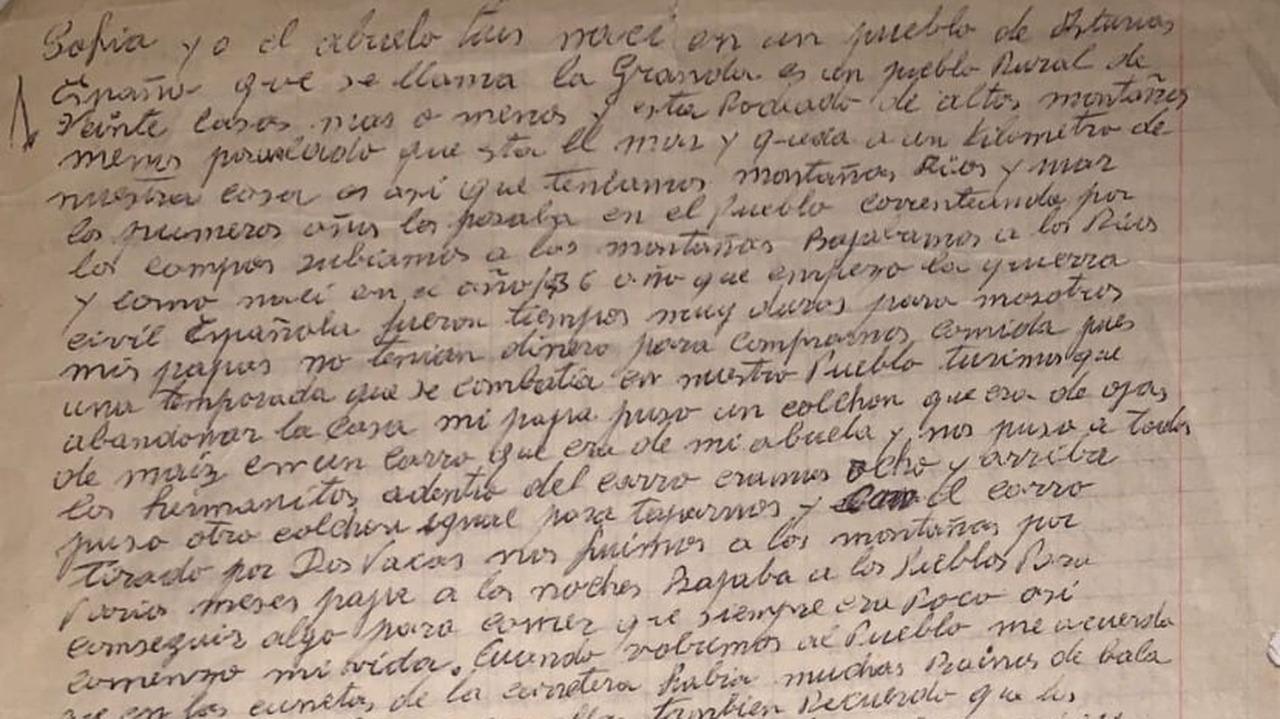 Sofia yo el abuelo Luis naci en un pueblo de Asturias
España que se llama la Granda es un pueblo Rural de
Veinte casas mas o menos y esta Rodiado de altos montañas
menos por un lado que sta el mar y queda a un kilometro de
nuestra casa es asi que teniamos montañas Rios y mar
los primeros años los pasaba en el Pueblo correnteando por
los campos subiamos a las montañas Bajavamos a los Rios
y como naci en el año 1936 año que empezo la guerra
civil Española fueron tiempos muy duros para nosotros
mis papas no tenian dinero para comprarnos comida pues
una temporada que se combatia en nuestro Pueblo tuvimos que
abandonar la casa mi papa puso un colchon que era de ojas
de maiz en un carro que era de mi abuela y nos puso a todos
los hermanitos adentro del carro eramos ocho y arriba
puso otro colchon igual para taparnos y el carro
tirado por Dos Vacas nos fuimos a las montañas por
Varios meses papa a las noches Bajaba a los Pueblos Para
conseguir algo para comer que siempre era Poco asi
comenzo mi vida. Cuando volvimos al Pueblo me acuerdo
que en las cunetas de la carretera Habia muchas Bainas de bala
tambien Recuerdo que los